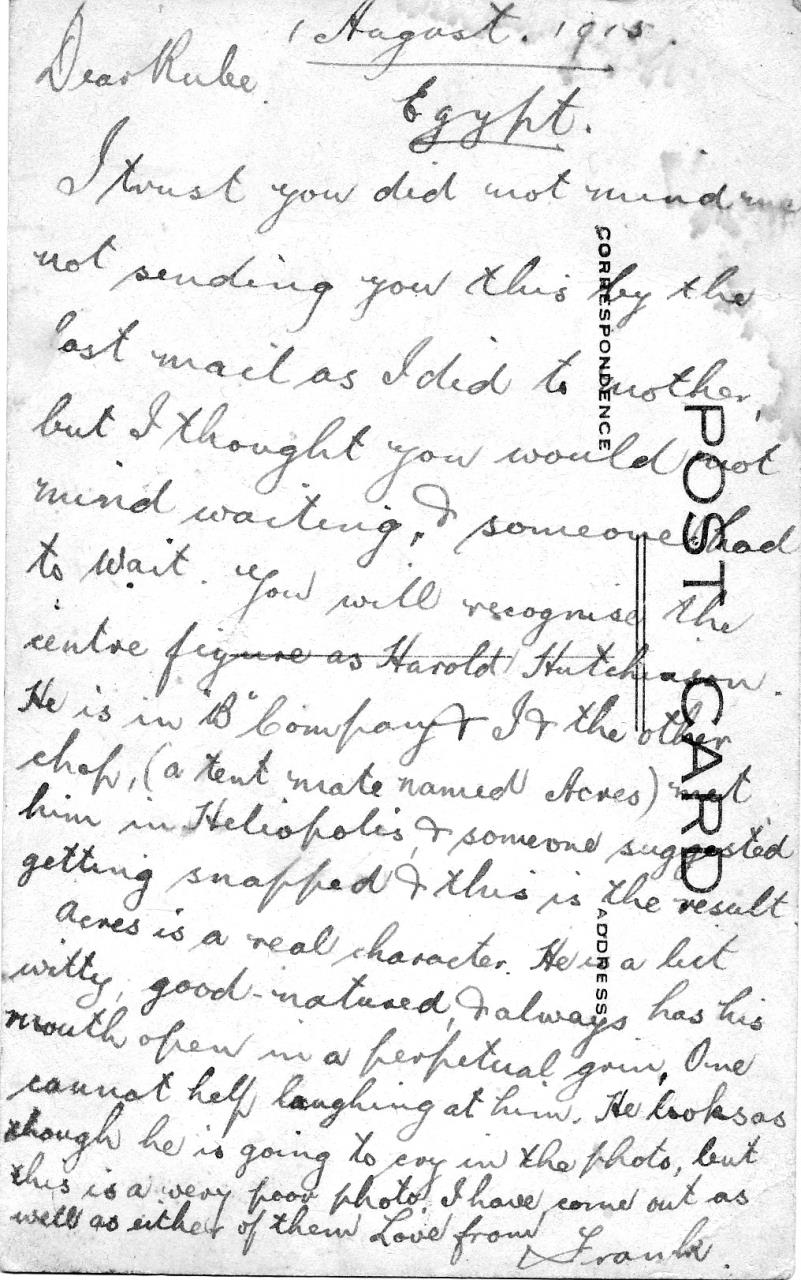 1 August. 1915.
Dear Rube
Egypt.
I trust you did not mind me
not sending you this by the
last mail as I did to mother,
but I thought you would not
mind waiting, & someone had
to wait. You will recognise the
centre figure as Harold Hutchinson.
He is in "B" Company & I & the other
chap, (a tent mate named Acres) met
him in Heliopolis, & someone suggested
getting snapped & this is the result
Acres is a real character. He is a bit
witty, good-natured, & always has his
mouth open in a perpetual grin, One
cannot help laughing at him. He looks as
though he is going to cry in the photo, but
this is a very poor photo. I have come out as
well as either of them Love from
Frank.
CORRESPONDENCE
POST CARD
ADDRESS